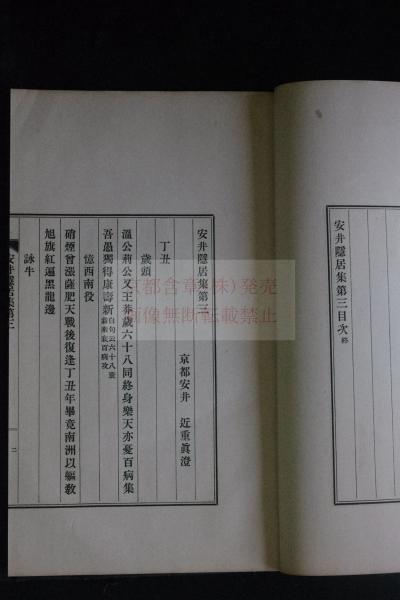 安井隱居集第三目次終
安井隱居集第三
京都安井 近重眞澄
丁丑
歲頭
溫公荊公又王莽歲六十八同終身樂天亦憂百病集
吾愚獨得康壽新白句云六十八衰
翁衰百病攻
憶西南役
硝煙曾漲薩肥天戰後復逢丁丑年畢竟南洲以軀教
旭旗紅遍黑龍邊
詠牛
安井隱居集第三
二
京都含章(株)発売
画像無断転載禁止